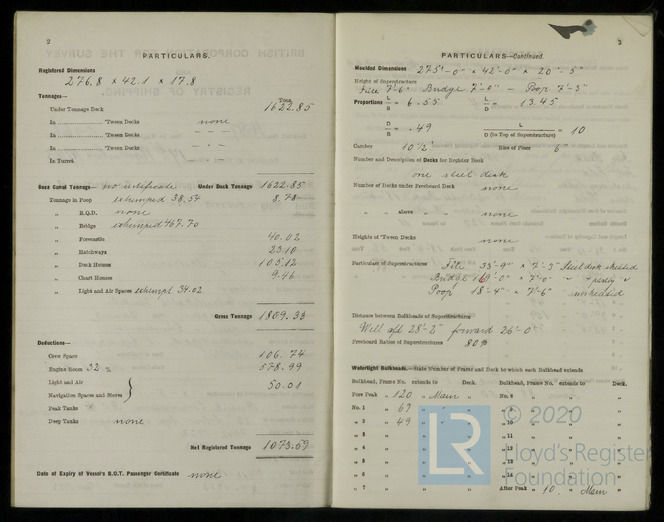 2
PARTICULARS.
Registered Dimensions
276.8 × 42.1 × 17.8
Tonnages—
Tons.
Under Tonnage Deck 1622.85
In .................. 'Tween Decks none
In .................. 'Tween Decks — — —
In .................. 'Tween Decks — - —
In Turret
Suez Canal Tonnage— no certificate Under Deck Tonnage 1622.85
Tonnage in Poop exempted 38.54 8.78
„ R.Q.D. none
„ Bridge exempted 467.70
„ Forecastle 40.02
„ Hatchways 23.10
„ Deck Houses 105.12
„ Chart Houses 9.46
„ Light and Air Spaces exempt 34.02
Gross Tonnage 1809.33
Deductions—
Crew Space 106.74
Engine Room 32 % 578.99
Light and Air
Navigation Spaces and Stores } 50.01
Peak Tanks
Deep Tanks none
Net Registered Tonnage 1073.59
Date of Expiry of Vessel's B.O.T. Passenger Certificate none
3
PARTICULARS—Continued.
Moulded Dimensions 275'-0" × 42'-0" × 20'-5"
Height of Superstructures
F'cle 7'-6" Bridge 7'-0" — Poop 7'-3"
Proportions L/B = 6.55 L/D = 13.45
D/B = .49 L/D (to Top of Superstructure) = 10
Camber 10½" Rise of Floor 6"
Number and Description of Decks for Register Book
one steel deck
Number of Decks under Freeboard Deck none
„ „ above „ „ none
Heights of 'Tween Decks none
Particulars of Superstructures F'cle 33'-9" × 7'-3" Steel deck sheathed
Bridge 169'-0" × 7'-0" „ partly „
Poop 18'-4" × 7'-6" unsheathed
Distance between Bulkheads of Superstructures
Well aft 28'-2" forward 26'-0"
Freeboard Ratios of Superstructures 80%
Watertight Bulkheads.—State Number of Frame and Deck to which each Bulkhead extends
Bulkhead, Frame No. extends to Deck. Bulkhead, Frame No. extends to Deck.
Fore Peak „ 120 „ Main „ No. 8 „ „ „
No. 1 „ 67 „ „ „ 9 „ „ „
„ 2 „ 49 „ „ „ 10
„ 11
„ 12
„ 13
„ 14
„ 15
„ 7 „ „ „ After Peak „ 10 „ Main „
LR © 2020
Lloyd's Register
Foundation